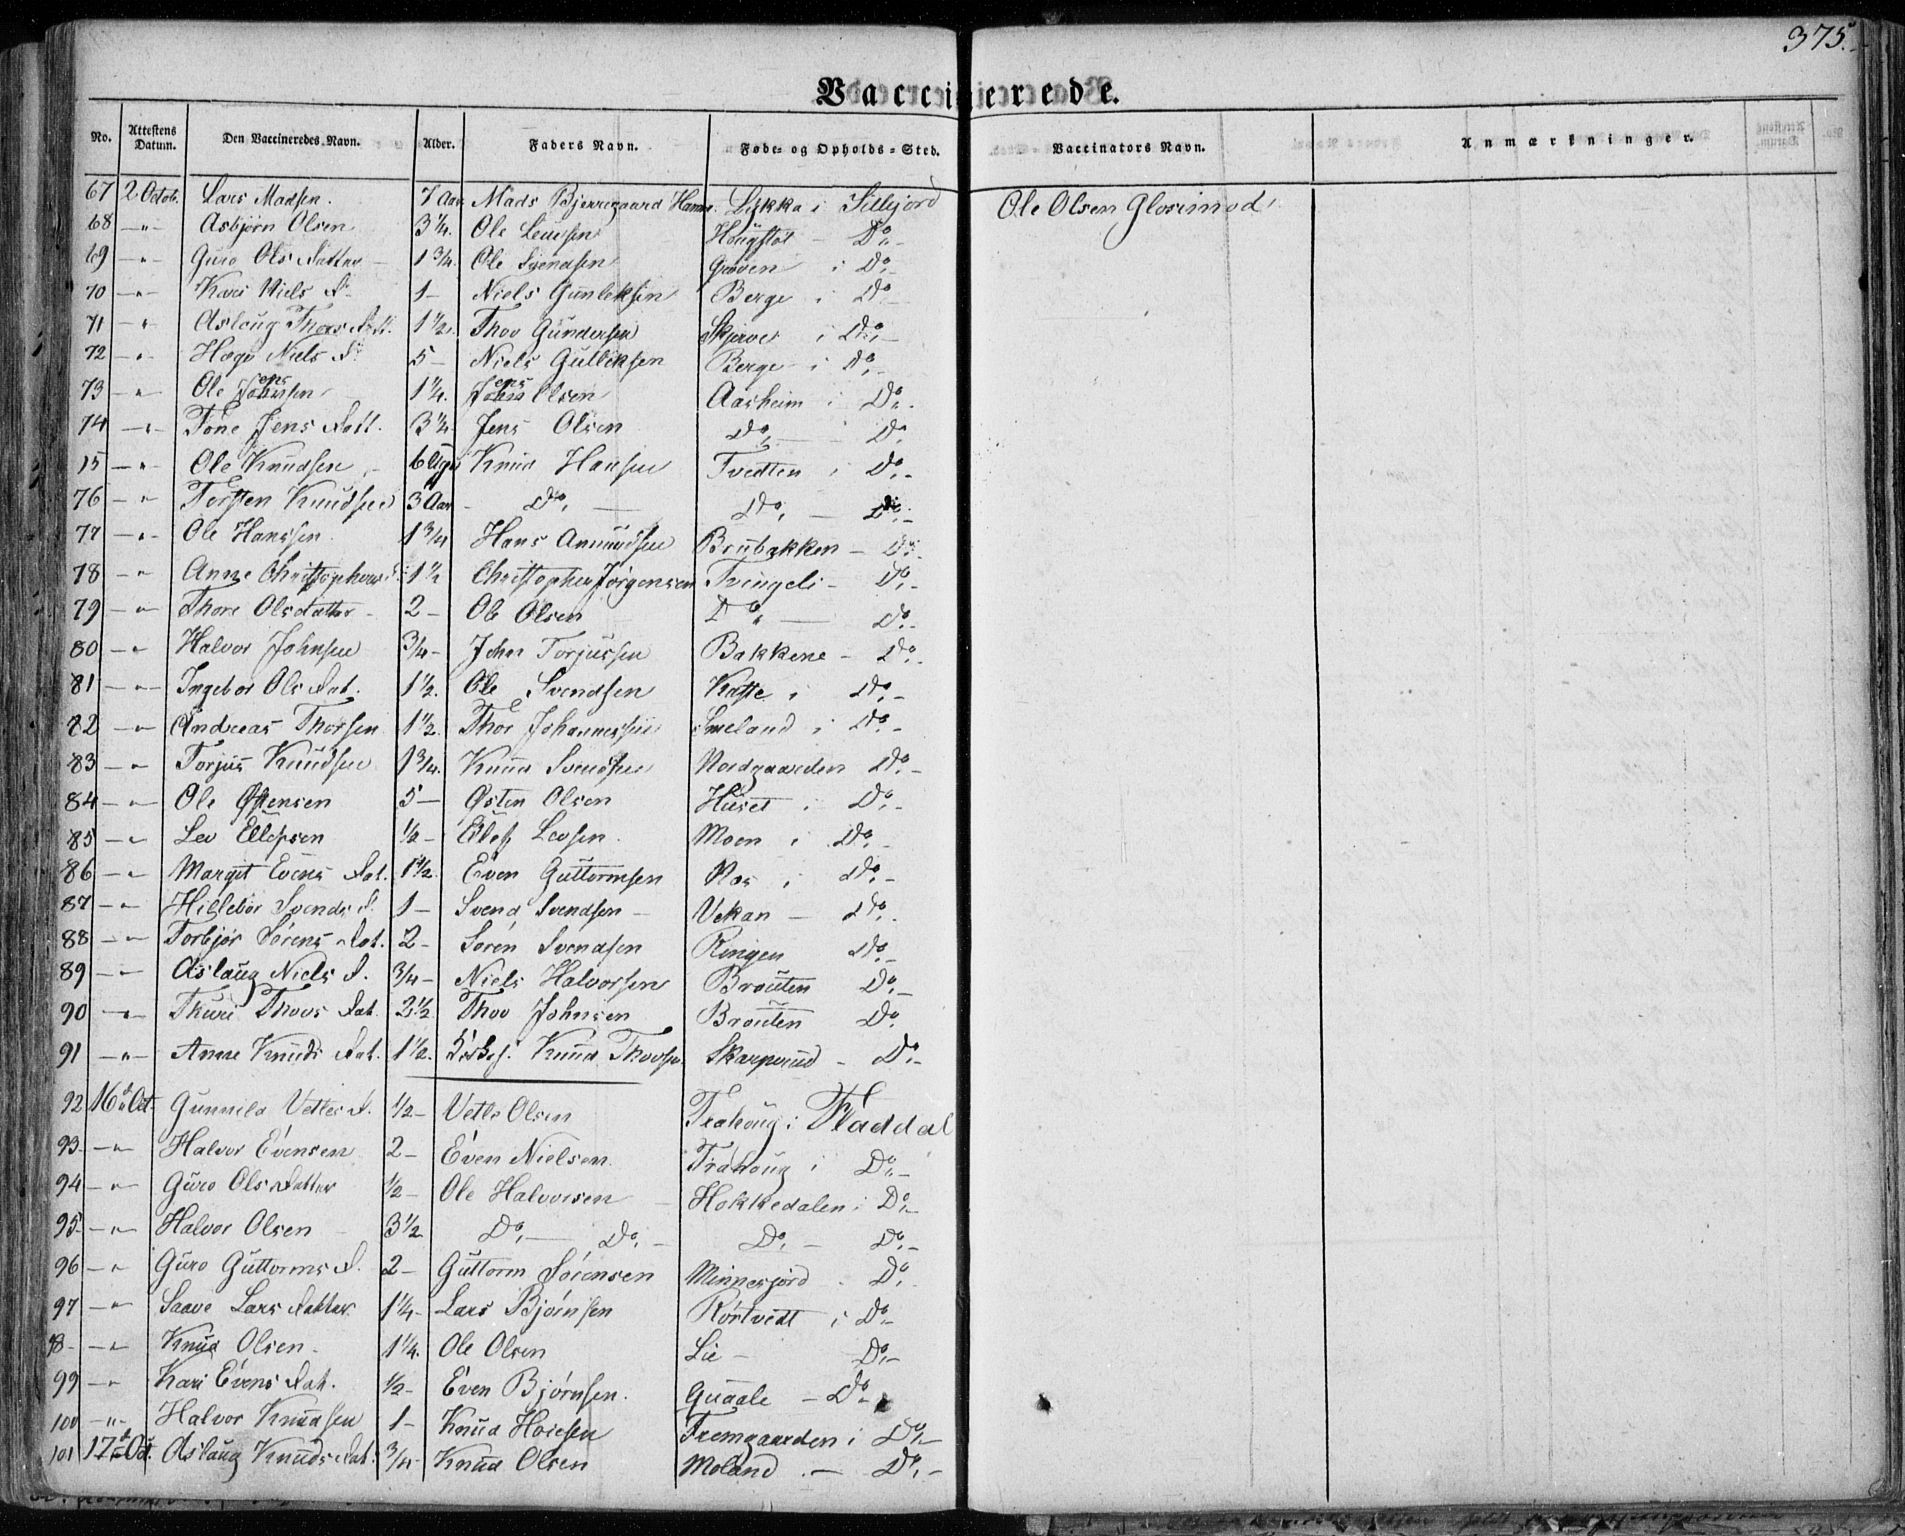 375.
Vaccinerede.
No. Attestens Datum. Den Vaccineredes Navn. Alder. Faders Navn. Føde- og Opholds-Sted. Vaccinators Navn. Anmærkninger.
67 2 Octob. Lars Madsen. 7 Aar Mads Bjerregaard Lykka i Sillejord Ole Olsen Glosimod
68 —"— Asbjørn Olsen 3¼. Ole Leussen — Do.
69 —"— Guro Ols Datter 1¾. Ole Svendsen Grøven i Do.
70 —"— Kari Niels D. 1— Niels Gunleksen Berge i Do
71 —"— Aslaug Thovs Datt. 1½. Thov Gundersen Skjerver i Do.
72 —"— Hæge Niels D. 5— Niels Gulleksen Berge i Do.
73 —"— Ole Jensen 1¼. Jens Olsen Aasheim i Do.
74 —"— Tone Jens Datt. 3¼ Jens Olsen Do. — Do.
15 —"— Ole Knudsen 6 Uger Knud Hansen Tvedten i Do.
76 —"— Torsten Knudsen 3 Aar Do. — Do. — Do.
77 —"— Ole Hanssen 1¾ Hans Amundsen Brubakken — Do.
78 —"— Anne Christophers D. 1½ Christopher Jørgensen Tvingeli — Do.
79 —"— Thore Olsdatter 2— Ole Olsen Do — Do.
80 —"— Halvor Johnsen ¾— John Torjussen Bakkene — Do.
81 —"— Ingebor Ols Dat. 1½. Ole Svendsen i Do.
82 —"— Andreas Thorsen 1½. Thor Johannessen Smeland i Do.
83 —"— Torjus Knudsen 1¾. Knud Svendsen Nordgaarden Do.
84 —"— Ole Østensen 5— Østen Olsen Huset i Do.
85 —"— Lev Ellefsen ½— Ellef Levsen. Moen i Do.
86 —"— Margit Evens Dat. 1½. Even Guttormsen Næs i Do.
87 —"— Hillebør Svends D. 1— Svend Svendsen Vekan — Do.
88 —"— Torbjør Sørens Dat. 2— Søren Svendsen Ringen Do.
89 —"— Aslaug Niels D. ¾— Niels Halvorsen Brauten Do.
90 —"— Thuri Thovs Dat. 2½ Thov Johnsen Brauten Do.
91 —"— Anne Knuds Dat. 1½. Knud Thovsen Skarperud — Do.
92 16d Oct. Gunnild Vetles D. ½— Vetle Olsen Trahoug i Fladdal
93 —"— Halvor Evensen 2— Even Nielsen Trahoug i Do.
94 —"— Guro Olsdatter ½— Ole Halvorsen Hokkedalen i Do.
95 —"— Halvor Olsen 3½ Do. — Do. — Do. — Do.
96 —"— Guro Guttorms D. 2— Guttorm Sørensen Minnesjord Do.
97 —"— Saave Lars Datter 1¼— Lars Bjørnsen Rørtvedt i Do
98 —"— Knud Olsen 1¼. Ole Olsen Lie — Do.
99 —"— Kari Evens Dat. ½— Even Bjørnsen. Quaale — Do.
100 —"— Halvor Knudsen 1— Knud Fremgaarden i Do.
101 17d Oct. Aslaug Knuds Dat. ¾— Knud Olsen Moland — Do.